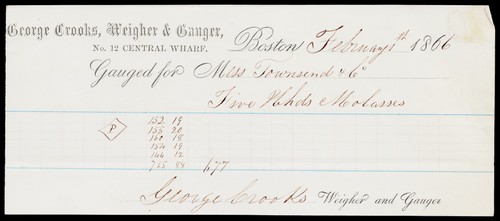 George Crooks, Weigher & Gauger,
No. 12 CENTRAL WHARF.
Boston February 1th 1866
Gauged for Miss Townsend & Co
Five Hhds Molasses
P
152 19
155 20
160 18
154 19
144 12
765 88 677
George Crooks Weigher and Gauger